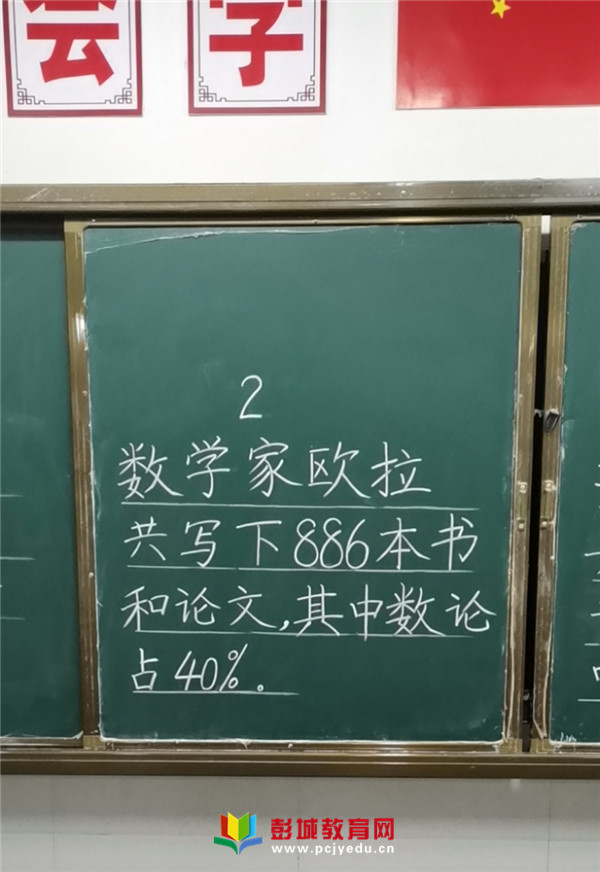 学
2
数学家欧拉
共写下886本书
和论文,其中数论
占40%.
彭城教育网
www.pcjyedu.cn